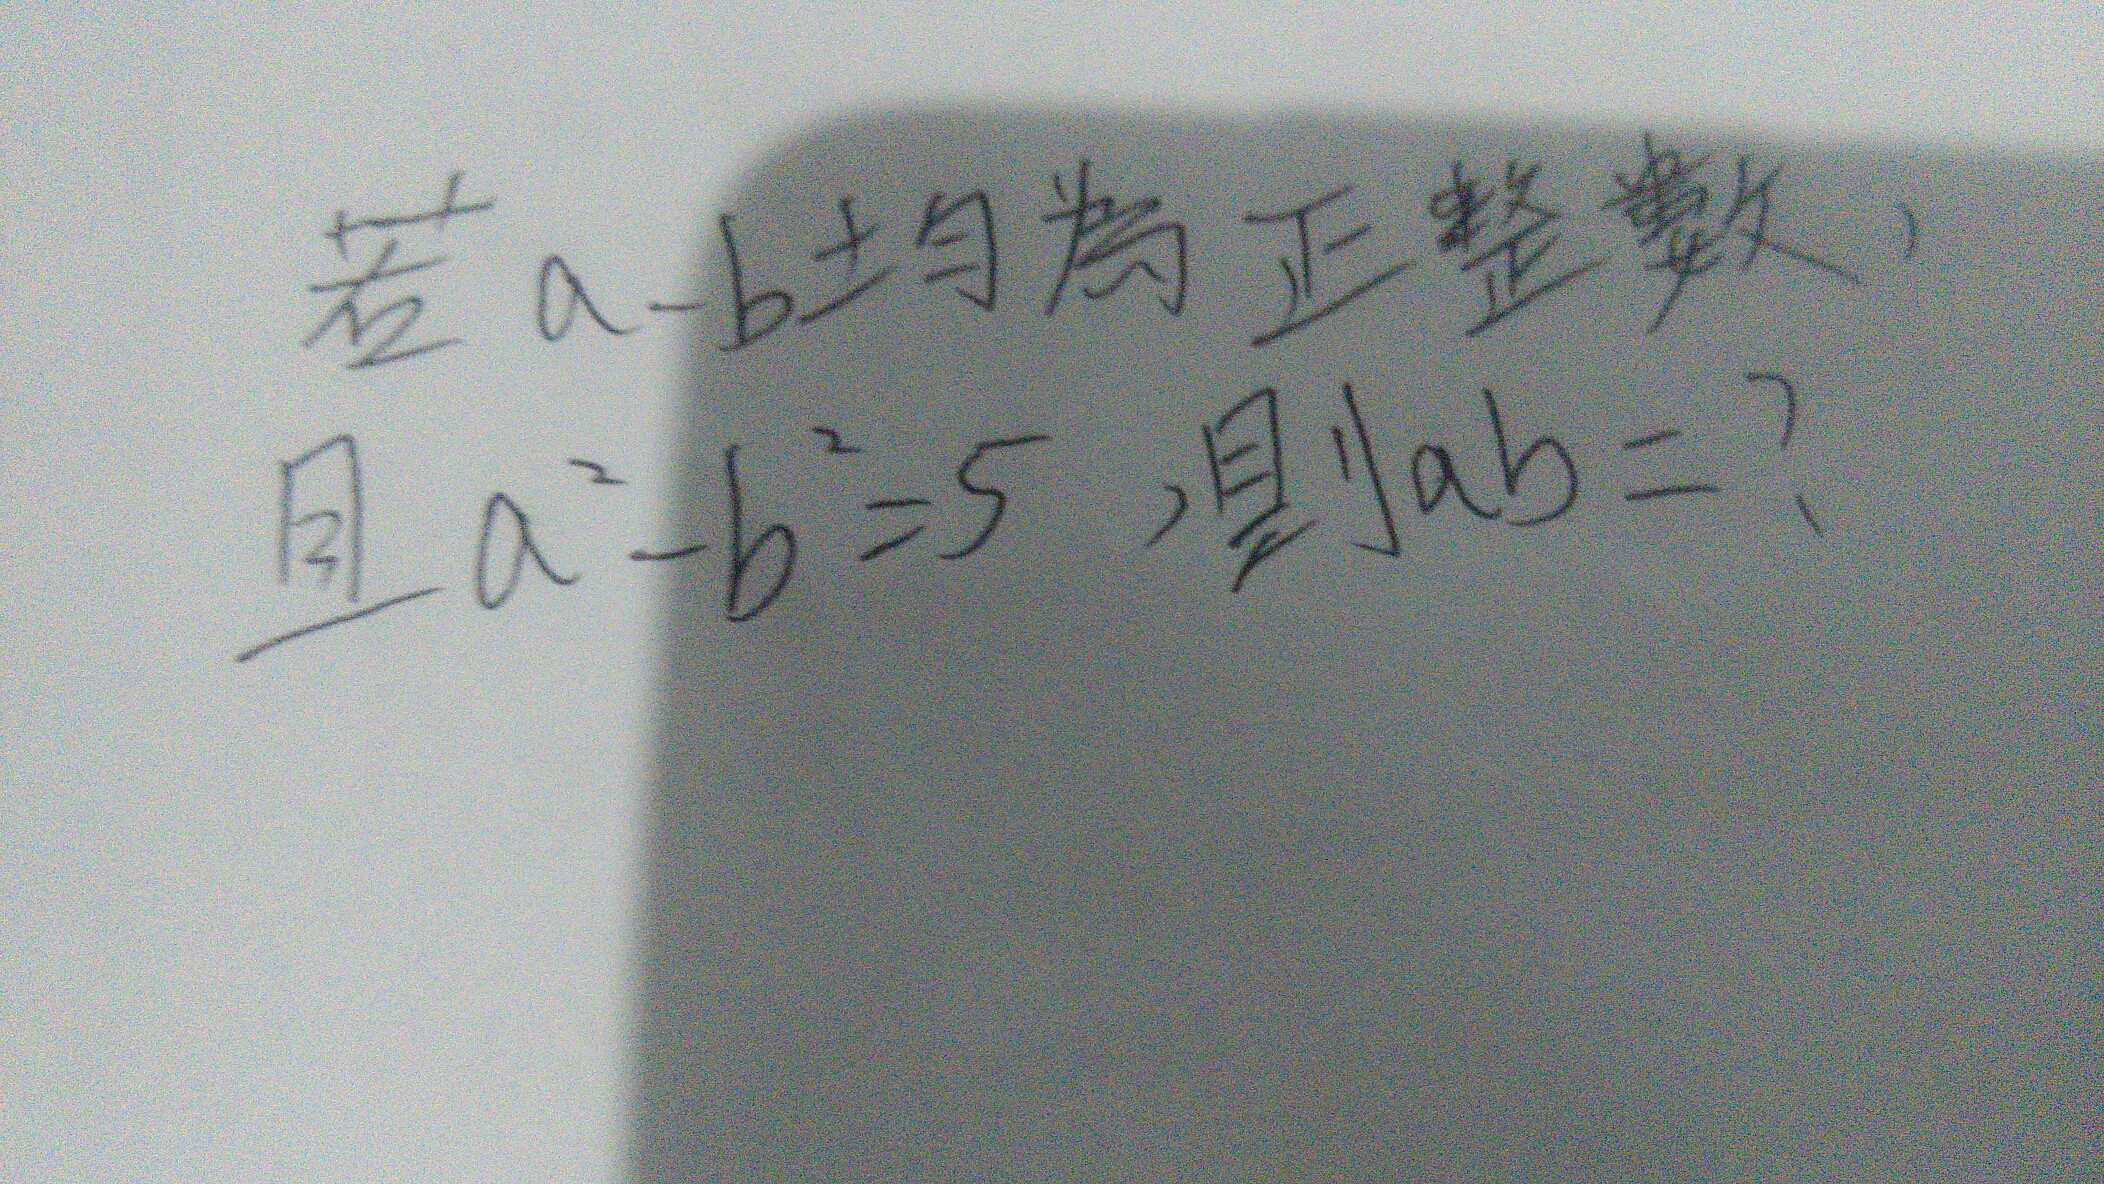 若a-b均為正整數,
且a²-b²=5,則ab=?